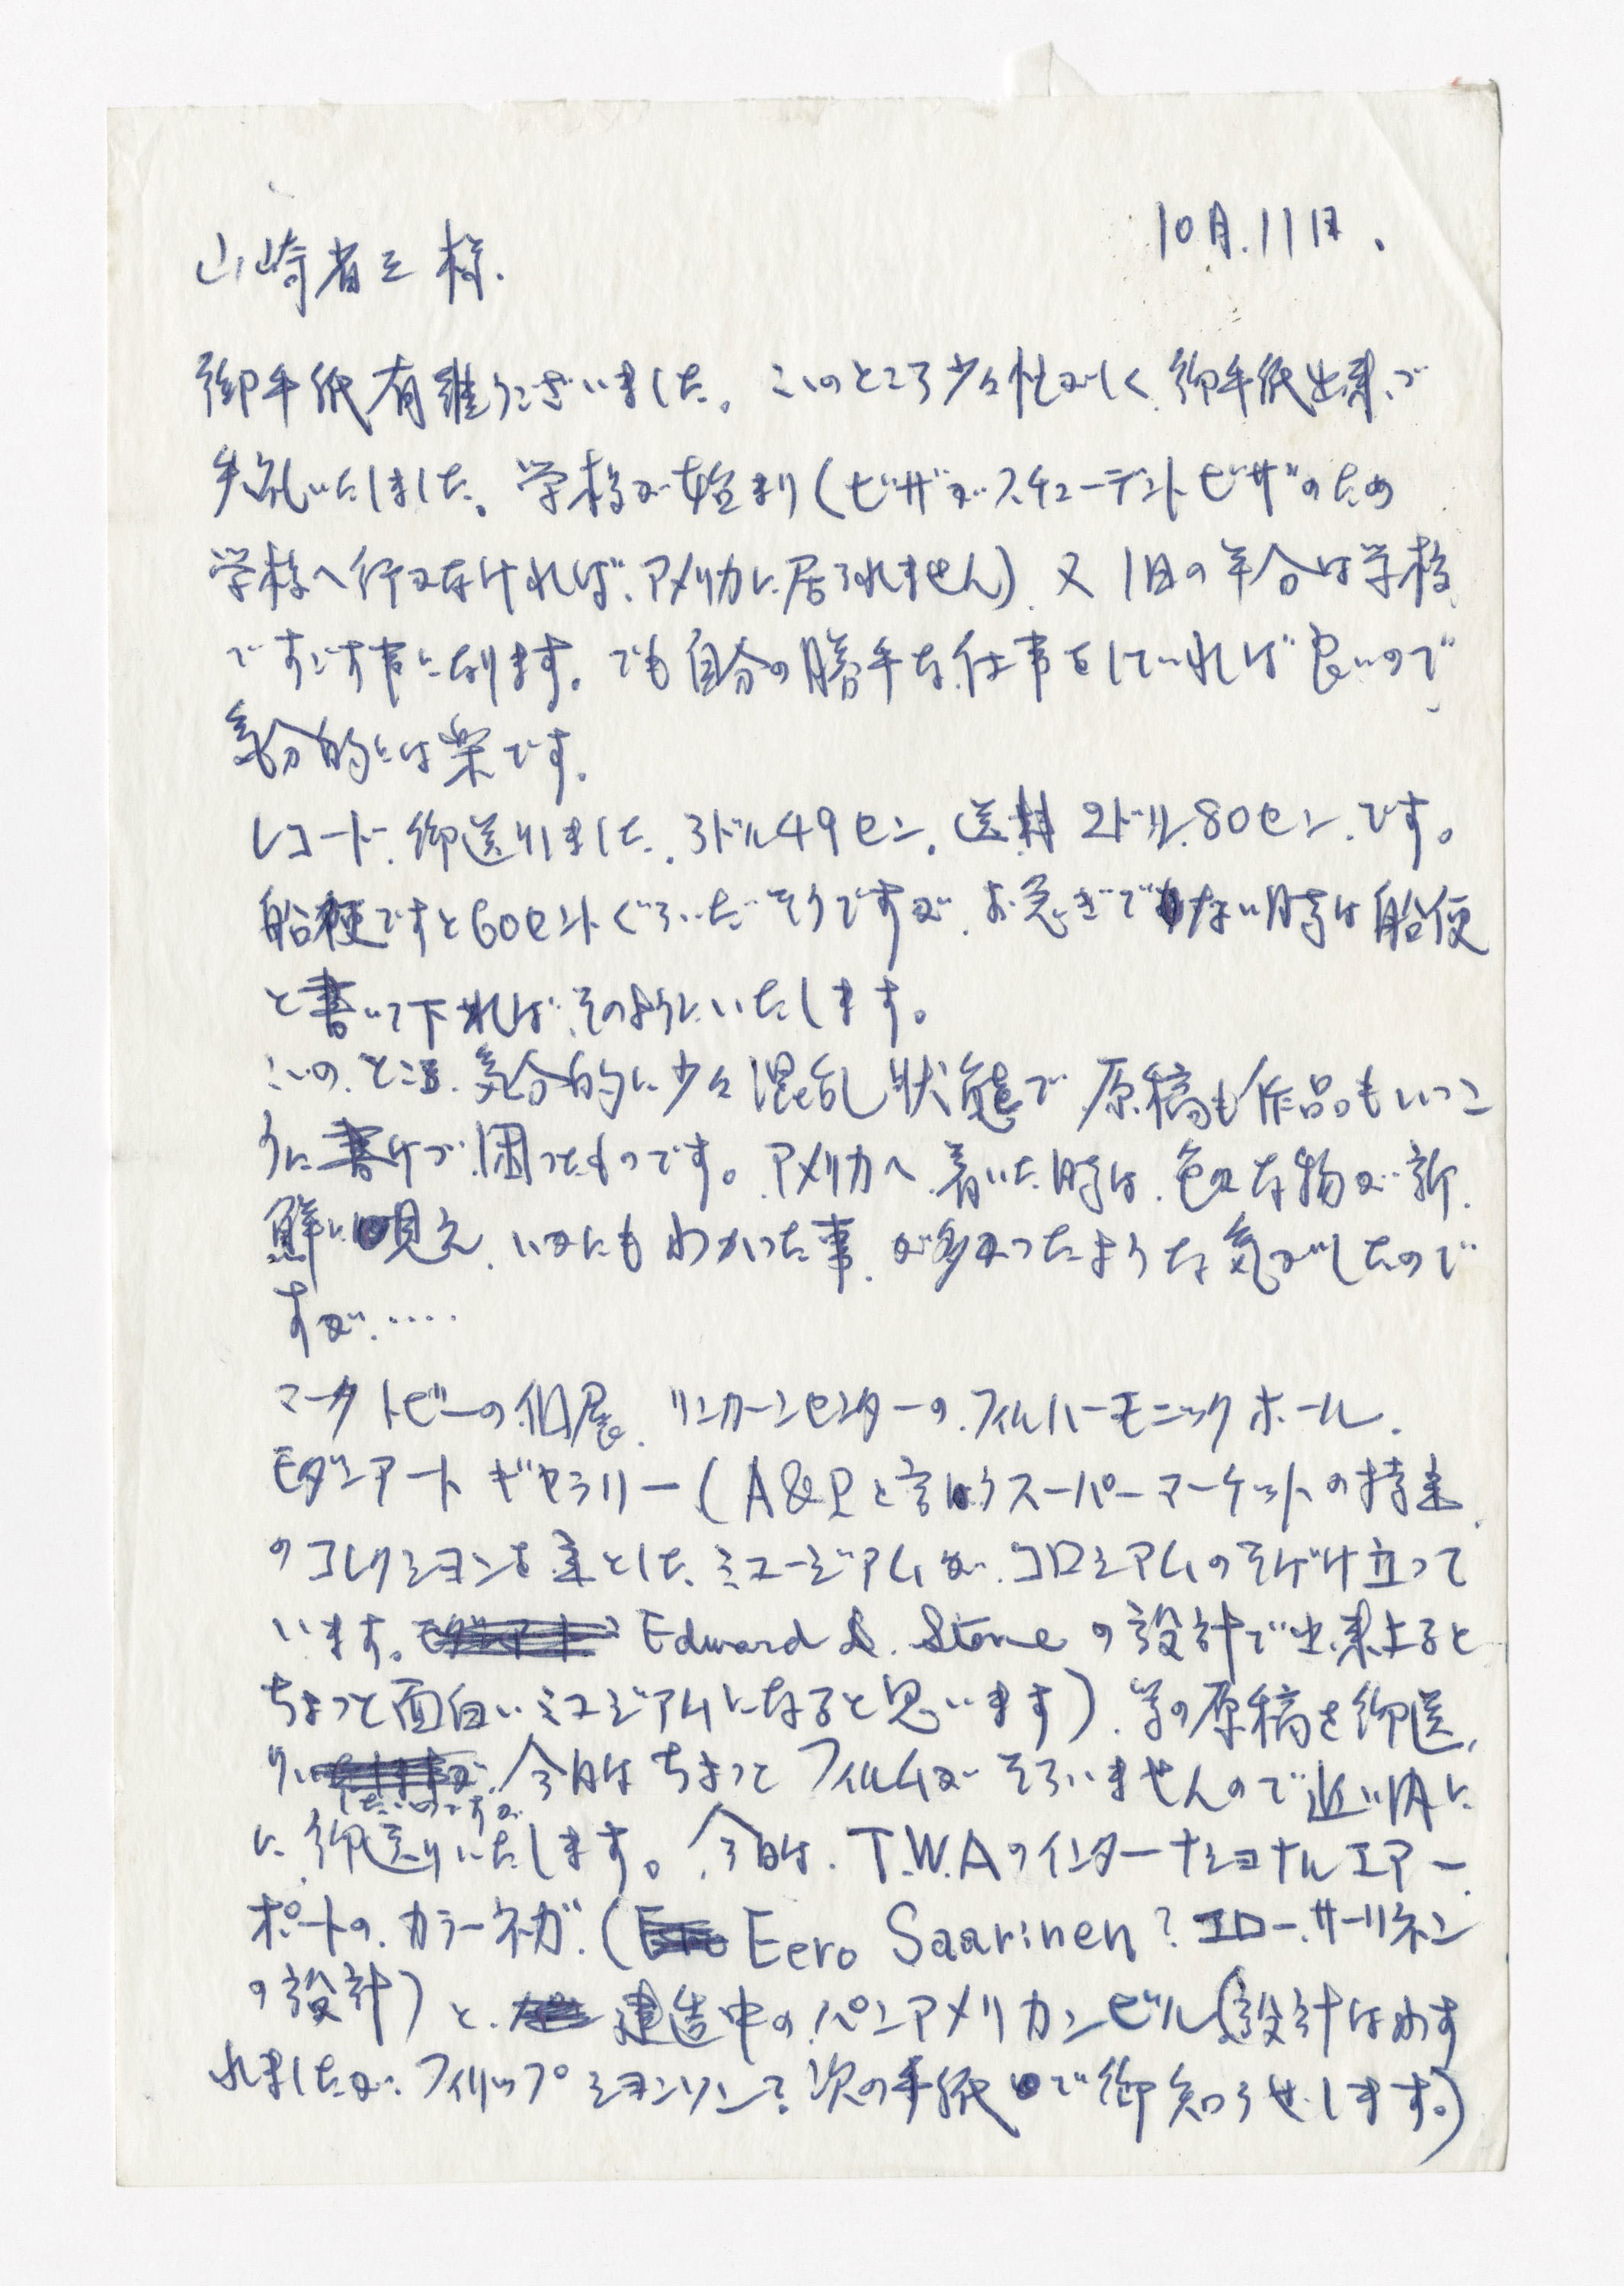 10月.11日.
山崎省三様.
御手紙有難うございました。このところ少々忙がしく御手紙出来ず
失礼いたしました。学校が始まり(ビザがスチューデントビザのため
学校へ行かなければ、アメリカに居られません)、又1日の半分は学校
ですごす事になります。でも自分の勝手な仕事をしていれば良いので
気分的には楽です。
レコード、御送りしました。3ドル49セン。送料2ドル80セン.です。
船便ですと60セントぐらいだそうですが、お急ぎでない時は船便
と書いて下されば、そのようにいたします。
このところ、気分的に少々混乱状態で、原稿も作品もいっこ
うに書けず、困ったものです。アメリカへ着いた時は、色々な物が新
鮮に見え、いかにもわかった事が多かったような気がしたので
すが.....
マークトビーの個展、リンカーンセンターの、フィルハーモニックホール、
モダンアートギャラリー(A&Pと言うスーパーマーケットの持主
のコレクションを主としたミュージアムが、コロシアムのそばに立って
います。Edward D. Stoneの設計で出来上ると
ちょっと面白いミュージアムになると思います)、等の原稿を御送
りしたいのですが、今日はちょっとフィルムがそろいませんので近い内に
に、御送りいたします。今日は、T.W.Aのインターナショナルエアー
ポートの、カラーネガ、(Eero Saarinen?エロー.サーリネン
の設計)と、建造中の、パンアメリカンビル(設計はわす
れましたが、フィリップジョンソン?次の手紙で御知らせします。)